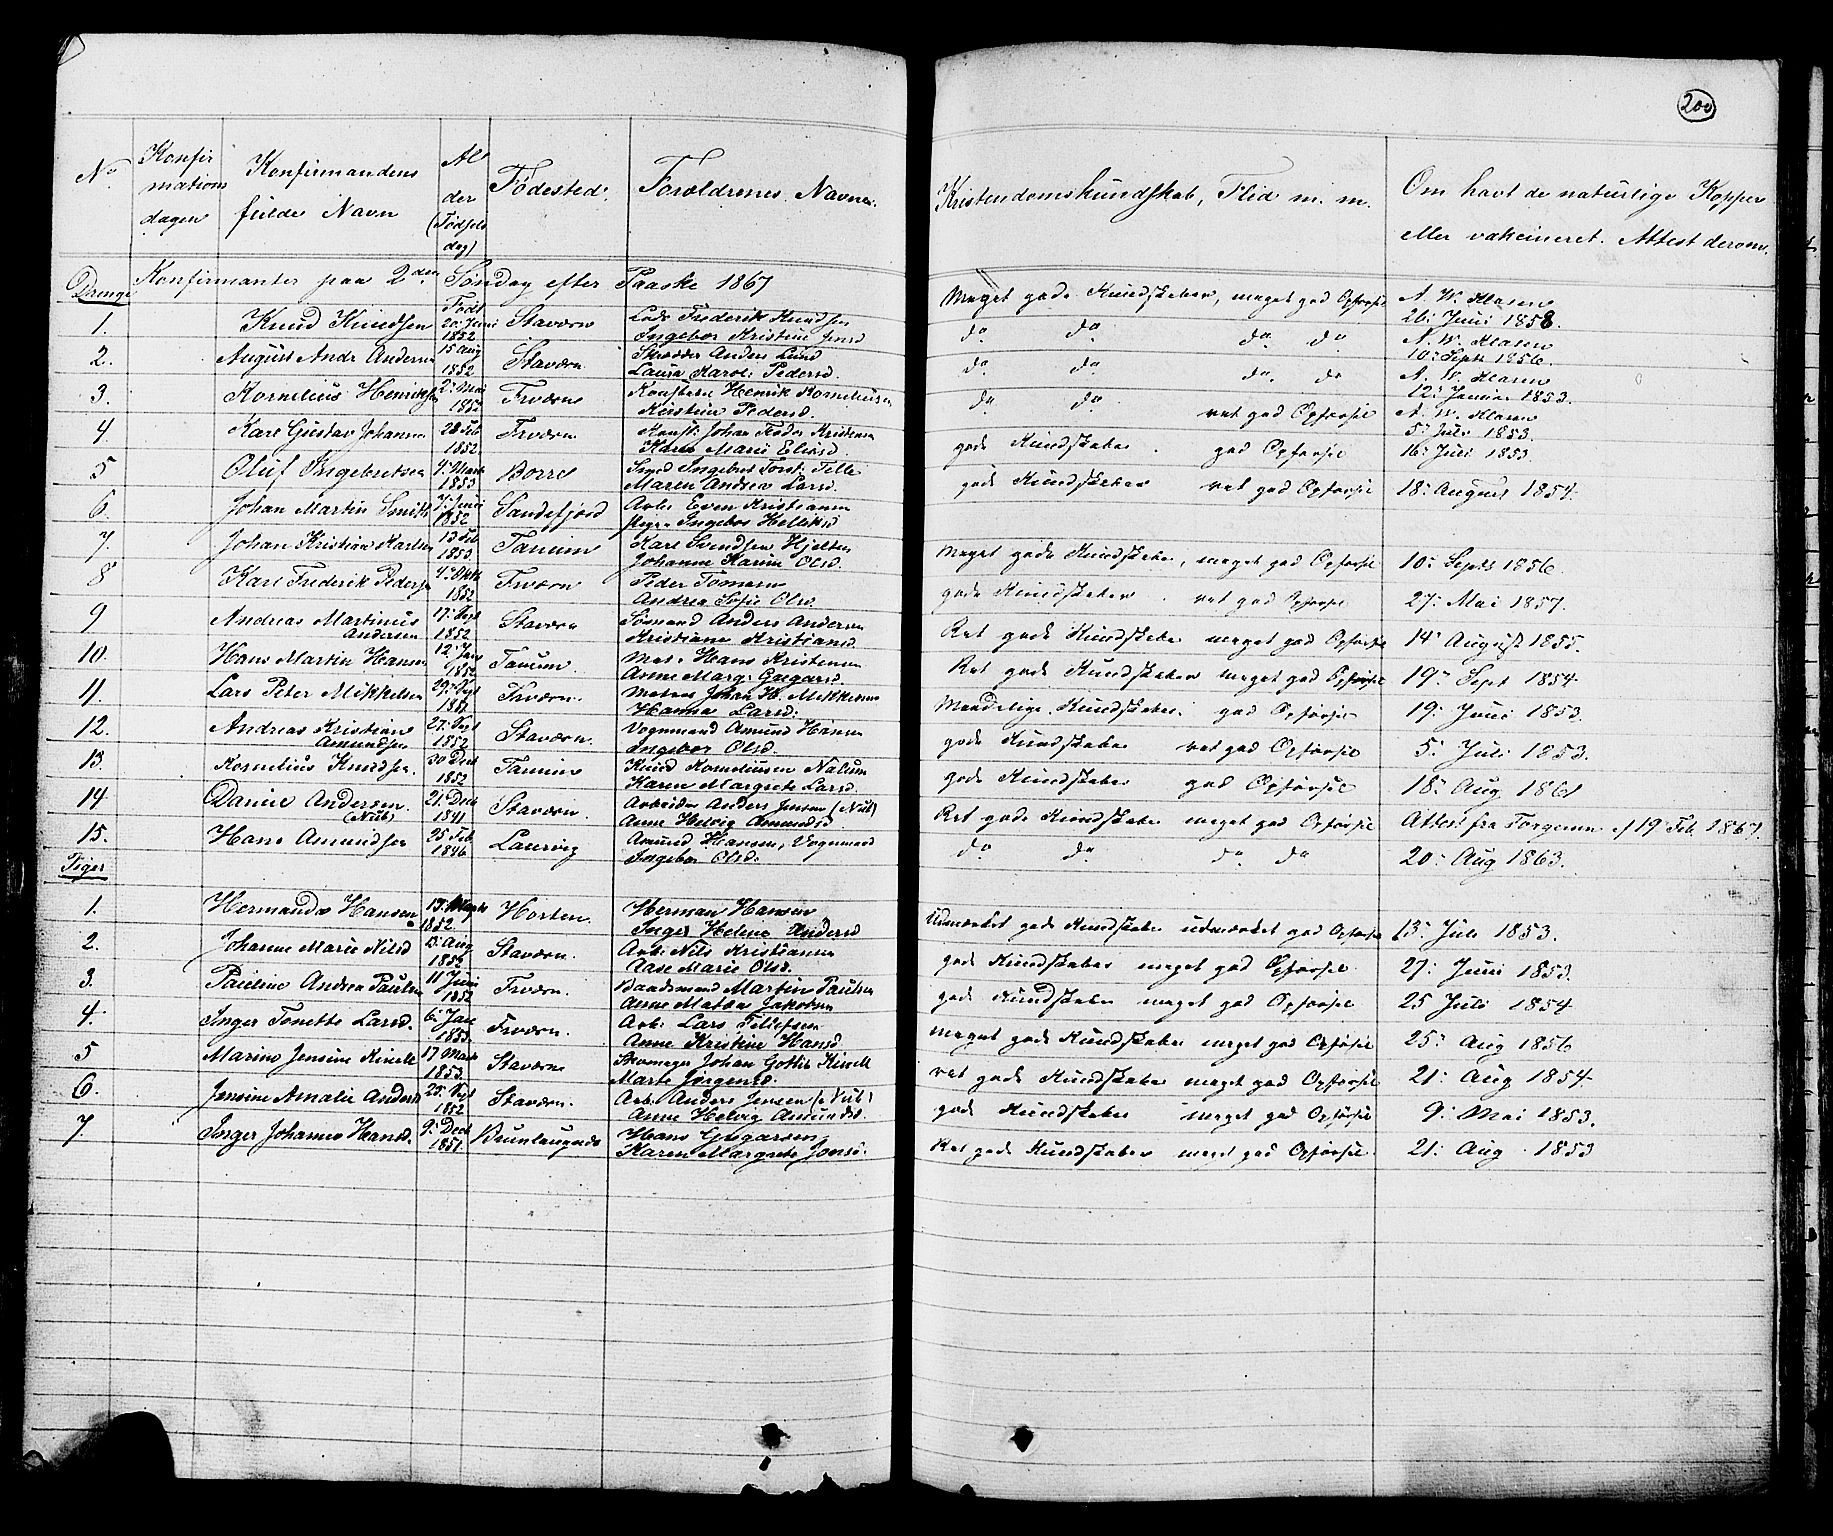 200
No
Konfir
mations
dagen
Konfirmandens
fulde Navn
Al
der
(Fødsels
dag)
Fødested.
Forældrenes Navne.
Kristendomskundskab, Flid m. m.
Om havt de naturlige Kopper
eller vakcineret. Attest derom.
Drenge Konfirmanter paa 2den Søndag efter Paaske 1867
1. Knud Knudsen Født 20 Juni 1852 Staværn Lods Frederik Knudsen
Ingebor Kristine Jensd Meget gode Kundskaber, meget god Opførsel A. W. Klasen 26: Juni 1858.
2. August Andr Andersen 15 Aug 1852 Staværn Skræder Anders Lund
Laura Karol: Pedersd. do do do do A. W. Klasen 10: Sept 1856.
3. Kornelius Henriksen 2: Mai 1852 Frværn Konstbem Henrik Korneliusen
Kirstine Pedersd. do do do do A. W. Klasen 12: Januar 1853.
4 Karl Gustav Johansen 28 Feb 1852. Frværn Konst: Johan Fredr Kristensen
Karen Marie Eliasd do do ret god Opførsel A. W. Klasen 5: Juli 1853.
5 Oluf Ingebretsen 4: Marts 1853 Borre Smed Ingebret Torst:
Maren Andrea Larsd. gode Kundskaber. god Opførsel 16: Juli 1853
6 Johan Martin Smith 7: Juni 1852 Sandefjord Arb: Even Kristiansen
Ingebor gode Kundskaber ret god Opførsel 18: August 1854
7. Johan Kristian Karlsen 13 Feb 1853 Tanum Karl Svendsen Hjelten
Johanne Karine Olsd. Meget gode Kundskaber, meget god Opførsel 10: Septb 1856.
8 Karl Frederik Pedersen 4: Oktb 1852 Frværn Peder Tomasen
Andrea Sofie Olsd. gode Kundskaber. ret god Opførsel 27: Mai 1857.
9 Andreas Martinus
Andersen 17: Sept 1852 Staværn Sømand Anders Andersen
Kristiane Kristiansd. Ret gode Kundskaber meget god Opførsel 14: August 1855.
10. Hans Martin Hansen 12: Jan 1852 Tanum Mat: Hans Kristensen
Anne Marg: Gregarsd. Ret gode Kundskaber meget god Opførsel 19: Sept 1854
11. Lars Peter Mikkelsen 29: Sept 1851 Frværn. Matros Johan H. Mikkelsen
Hanna Larsd: Maadelige Kundskaber. god Opførsel 19: Juni 1853.
12. Andreas Kristian
Amundsen 27: Sept 1852 Staværn. Vognmand Amund Hansen
Ingebor Olsd. gode Kundskaber ret god Opførsel 5: Juli 1853.
13. Kornelius Knudsen. 30 Decb 1852 Tanum Knud Korneliusen Nalum
Karen Margrete Larsd. gode Kundskaber god Opførsel 18: Aug 1861
14 Danine Andersen.
(Nub) 21: Decb 1841 Staværn Arbeider Anders Jensen (Nub)
Anne Helvig Amundsd. Ret gode Kundskaber meget god Opførsel Attest fra Torgersen af 19: Feb. 1867.
15. Hans Amundsen 25 Feb 1846 Laurvig Amund Hansen, Vognmand
Ingebor Olsd: do do do do 20: Aug 1863.
Piger
1. Hermanda Hansen 13: Septb 1852. Horten. Herman Hansen
Inger Helene Andersd Udmærket gode Kundskaber udmærket god Opførsel 13: Juli 1853.
2. Johanne Marie Nilsd 15: Aug 1852 Staværn. Arb: Nils Kristiansen
Aase Marie Olsd. gode Kundskaber meget god Opførsel 27: Juni 1853.
3. Pauline Andrea Paulsen 11 Juni 1852 Frværn. Baadsmand Martin Paulsen
Anne Matea Jakobsen gode Kundskaber meget god Opførsel 25 Juli 1854
4. Inger Tonette Larsd. 6: Jan 1853. Frværn. Arb: Lars Tellefsen
Anne Kristine Hansd. meget gode Kundskaber meget god Opførsel 25: Aug 1856
5 Marine Jensine Kinell 17 Marts 1853. Staværn Skomager Johan Gotlib Kinell
Marte Jørgensd. ret gode Kundskaber meget god Opførsel 21: Aug 1854
6. Jensine Amalie Andersd 25: Sept 1852 Staværn. Arb: Anders Jensen (Nub)
Anne Helvig Amundsd. gode Kundskaber meget god Opførsel 9: Mai 1853.
7. Inger Johanne Hansd. 9: Decb 1851 Brunlaugnæs Hans Gregarsen
Karen Margrete Jonsd. Ret gode Kundskaber meget god Opførsel. 21: Aug. 1853